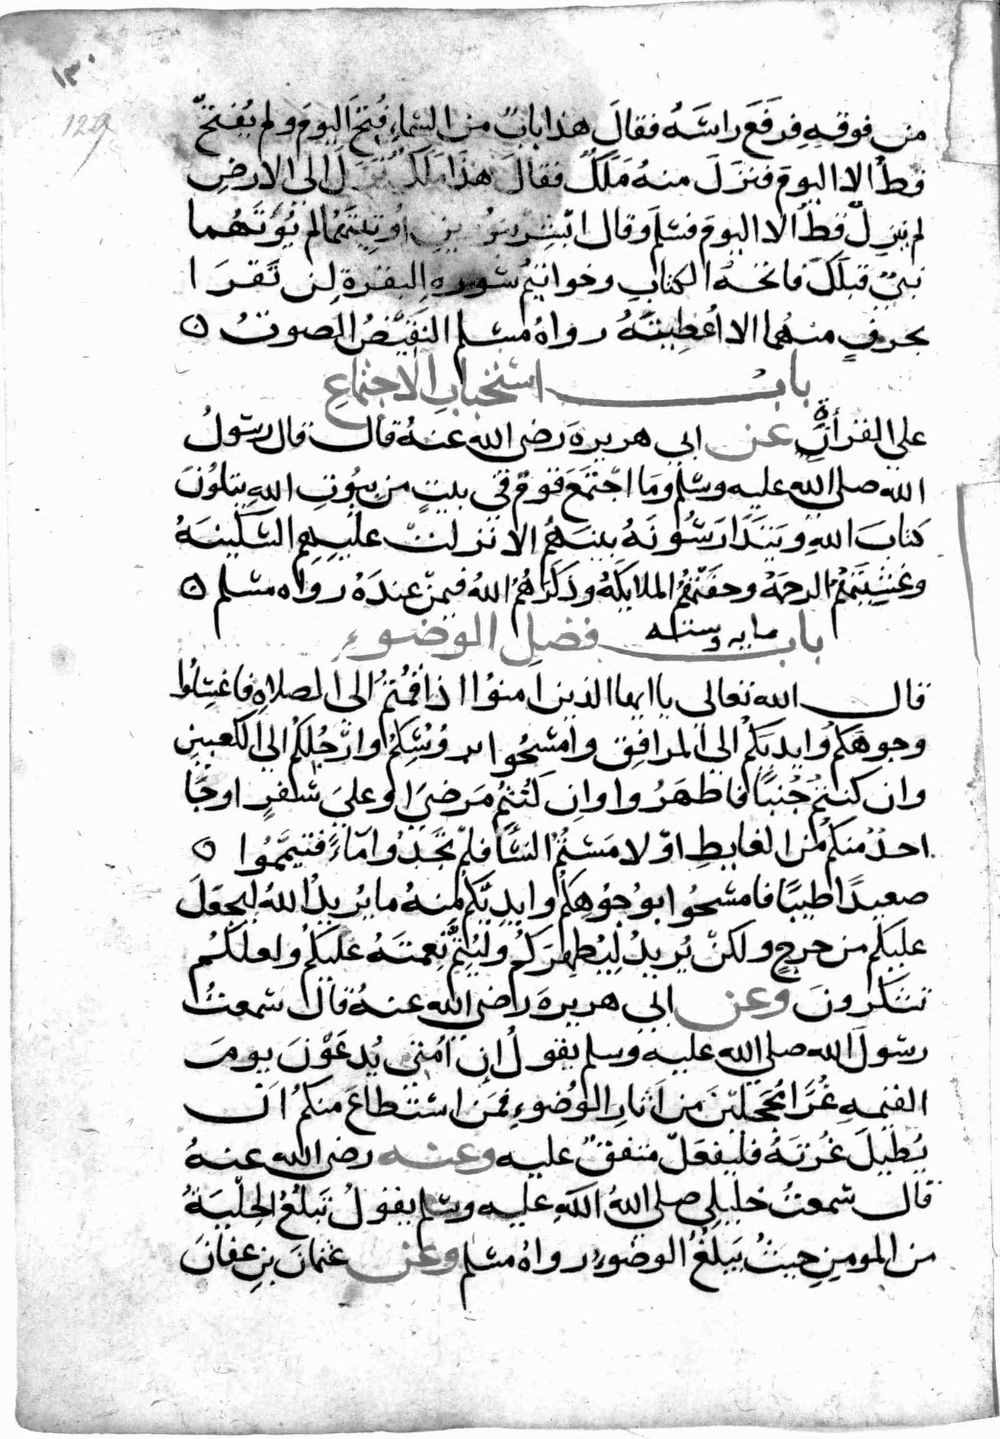 ١٣٠
129
من فوقه فرفع راسه فقال هذا باب من السماء فتح اليوم ولم يفتح
قط الا اليوم فنزل منه ملك فقال هذا ملك نزل الى الارض
لم ينزل قط الا اليوم فسلم وقال ابشر بنورين اوتيتهما لم يؤتهما
نبي قبلك فاتحة الكتاب وخواتيم سورة البقرة لن تقرا
بحرف منهما الا اعطيته رواه مسلم النقيض الصوت ٥
باب استحباب الاجتماع
على القرأة عن ابى هريرة رضى الله عنه قال قال رسول
الله صلى الله عليه وسلم وما اجتمع قوم في بيت من بيوت الله يتلون
كتاب الله ويتدارسونه بينهم الا نزلت عليهم السكينة
وغشيتهم الرحمة وحفتهم الملايكة وذكرهم الله فيمن عنده رواه مسلم ٥
باب مايه وسته فضل الوضوء
قال الله تعالى يا ايها الذين امنوا اذا قمتم الى الصلاة فاغسلوا
وجوهكم وايديكم الى المرافق وامسحوا بروسكم وارجلكم الى الكعبين
وان كنتم جنبا فاطهروا وان كنتم مرضى او على سفر او جا
احد منكم من الغايط او لامستم النسا فلم تجدوا ماء فتيمموا ٥
صعيدا طيبا فامسحوا بوجوهكم وايديكم منه ما يريد الله ليجعل
عليكم من حرج ولكن يريد ليطهركم وليتم نعمته عليكم ولعلكم
تشكرون وعن ابى هريرة رضى الله عنه قال سمعت
رسول الله صلى الله عليه وسلم يقول ان امتى يدعون يوم
القيمه غرا محجلين من اثار الوضوء فمن استطاع منكم ان
يطيل غرته فليفعل متفق عليه وعنه رضى الله عنه
قال سمعت خليلى صلى الله عليه وسلم يقول تبلغ الحلية
من المومن حيث يبلغ الوضوء رواه مسلم وعن عثمان بن عفان